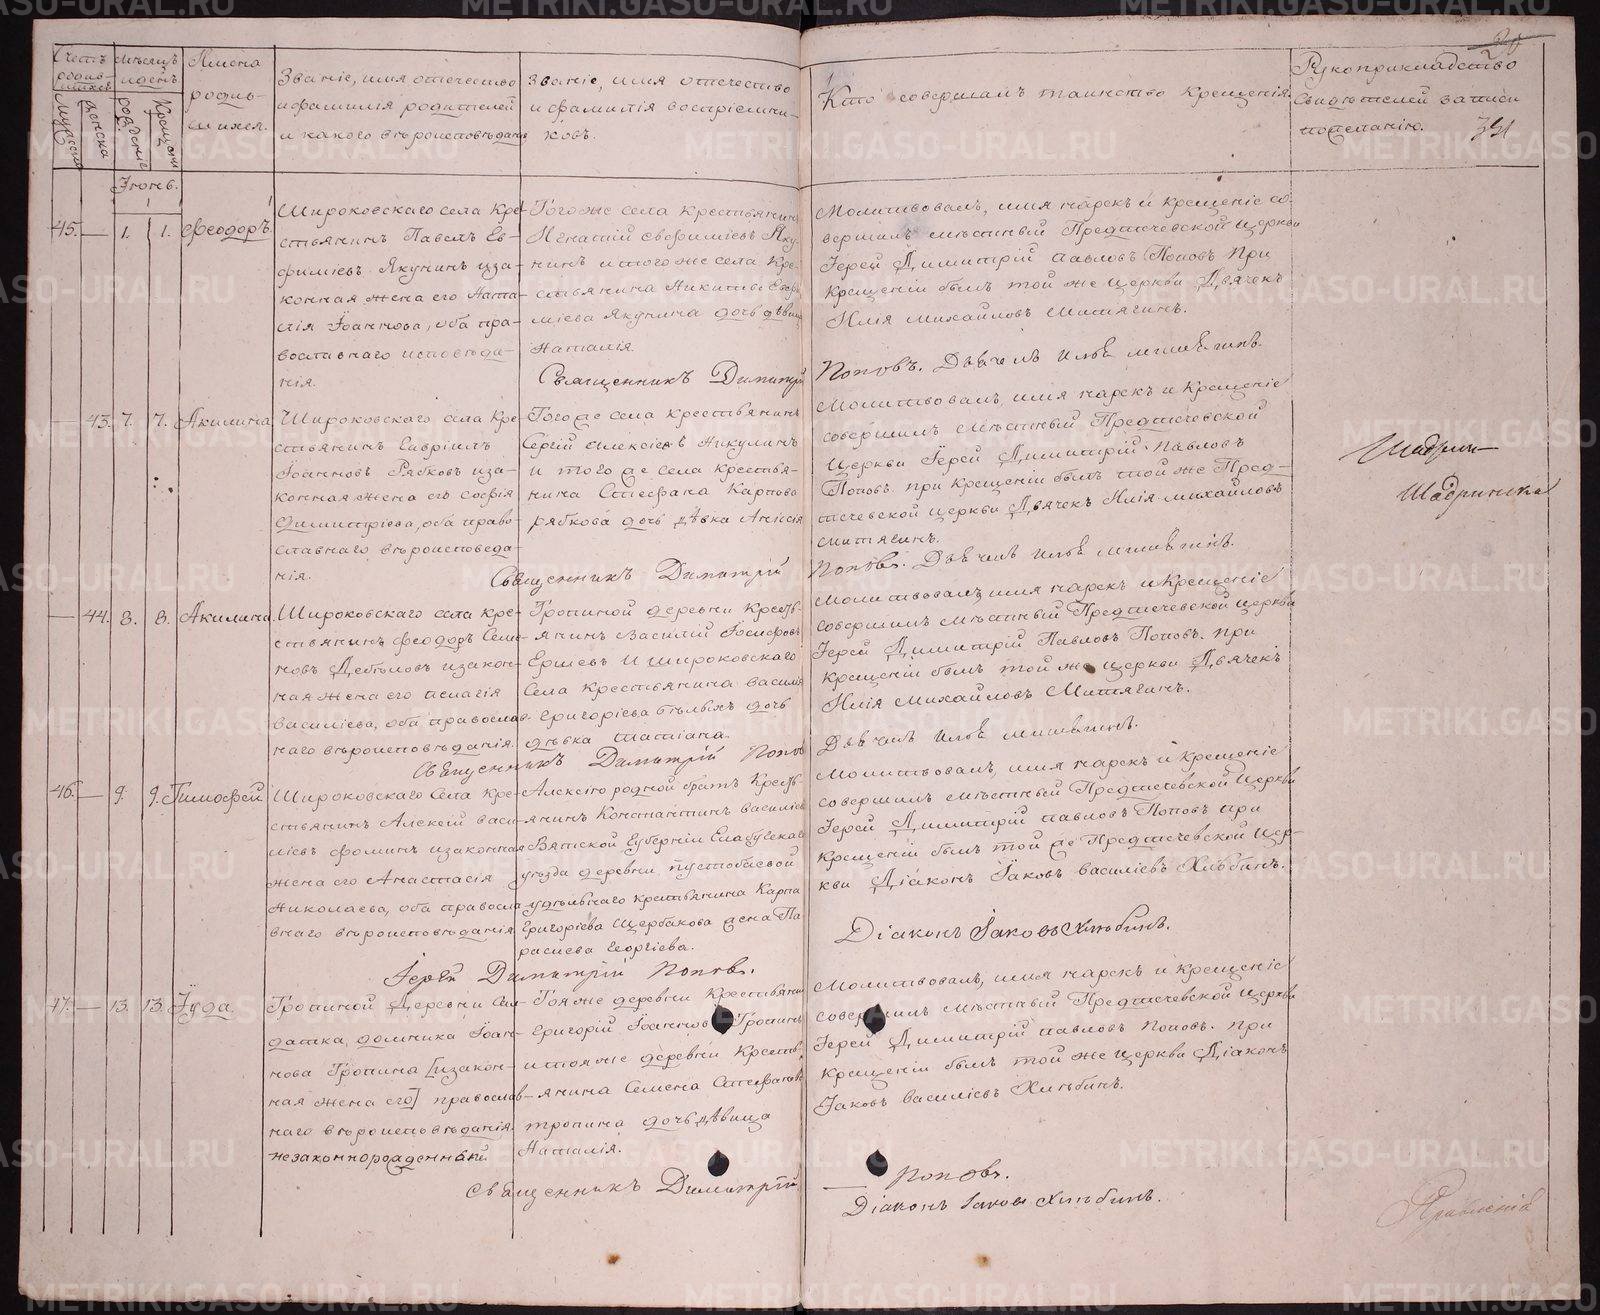 Счетъ родившихся
Мужеска
Женска
Мѣсяцъ и день
рожденіе
Крещеніе
Имена родившихся.
Званіе, имя отечество
и фамилія родителей
и какого вѣроисповѣданія
Званіе, имя отечество
и фамилія воспріемни-
ковъ.
Кто совершалъ таинство крещенія.
Рукоприкладство
свидѣтелей записи
пожеланію.
391
20
Іюнь.
45. — 1. 1. Феодоръ
Широковскаго села Кре-
стьянинъ Павелъ Ев-
фиміевъ Якунинъ иза-
конная жена его Ната-
лія Іоаннова, оба пра-
вославнаго исповѣда-
нія.
Тогоже села Крестьянинъ
Игнатій Евфиміевъ Яку-
нинъ итого же села Кре-
стьянина Никиты Евфи-
міева Якунина дочь дѣвица
Наталія.
Молитвовалъ, имя нарекъ и крещеніе со-
вершилъ мѣстный Предтечевской церкви
Іерей Димитрій Павловъ Поповъ При
крещеніи былъ той же церкви Дьячекъ
Илія Михайловъ Митягинъ.
Священникъ Димитрій Поповъ. Дьячекъ Илья Митягинъ.
— 43. 7. 7. Акилина
Широковскаго села Кре-
стьянинъ Гавріилъ
Іоанновъ Рябковъ иза-
конная жена его Софія
Димитріева, оба право-
славнаго вѣроисповеда-
нія.
Тогоже села крестьянинъ
Сергій Алексіевъ Никулинъ
и того же села крестья-
нина Стефана Карпова
рябкова дочь дѣвка Анісія
Молитвовалъ, имя нарекъ и Крещеніе
совершилъ Мѣстный Предтечевской
церкви Іерей Димитрій Павловъ
Поповъ. При Крещеніи былъ той же Пред-
течевской церкви Дьячекъ Илія Михайловъ
Митягинъ.
Священникъ Димитрій Поповъ. Дьячекъ Илья Митягинъ.
Шадрин-
Шадринска
— 44. 8. 8. Акилина.
Широковскаго села Кре-
стьянинъ Феодоръ Семе-
новъ Дебеловъ изакон-
ная жена его Пелагія
Василіева, оба православ-
наго вѣроисповѣданія.
Тропиной деревни Кресть-
янинъ Василій Іосифовъ
Ершевъ И широковскаго
Села Крестьянина Василія
Григоріева Бѣлыхъ дочь
дѣвка Татіана.
Молитвовалъ, имя нарекъ и Крещеніе
совершилъ Мѣстный Предтечевской церкви
Іерей Димитрій Павловъ Поповъ. При
крещеніи былъ той же церкви Дьячекъ
Илія Михайловъ Митягинъ.
Священникъ Димитрій Поповъ
Дьячекъ Илья Митягинъ.
46. — 9. 9. Тимофей
Широковскаго Села Кре-
стьянинъ Алексій Васи-
ліевъ Фоминъ изаконная
жена его Анастасія
Николаева, оба правосла-
внаго вѣроисповѣданія
Алексію родной братъ Кресть-
янинъ Константинъ Василіевъ
Вятской Губерніи Елабужскаго
уѣзда деревни Пустобаевой
удѣльнаго крестьянина Карпа
Григоріева Щербакова жена Па-
расцева Георгіева.
Молитвовалъ, имя нарекъ и крещеніе
совершилъ Мѣстный Предтечевской Церкви
Іерей Димитрій Павловъ Поповъ при
крещеніи былъ той же Предтечевской Цер-
кви Діаконъ Іаковъ Василіевъ Хлѣбинъ.
Діаконъ Іаковъ Хлѣбинъ.
Іерей Димитрій Поповъ.
47. — 13. 13. Іуда.
Тропиной Деревни Сол-
датка, домника Іоан-
нова Тропина [изакон-
ная жена его] православ-
наго вѣроисповѣданія.
незаконнорожденный
Тояже деревни Крестьянинъ
Григорій Іоанновъ Тропинъ
итояже деревни Кресть-
янина Семена Стефанова
тропина дочь дѣвица
Наталія.
Молитвовалъ, имя нарекъ и крещеніе
совершилъ мѣстный Предтечевской церкви
Іерей Димитрій Павловъ Поповъ. При
крещеніи былъ той же церкви Діаконъ
Іаковъ Василіевъ Хлѣбинъ.
Священникъ Димитрій Поповъ.
Діаконъ Іаковъ Хлѣбинъ.
METRIKI.GASO-URAL.RU